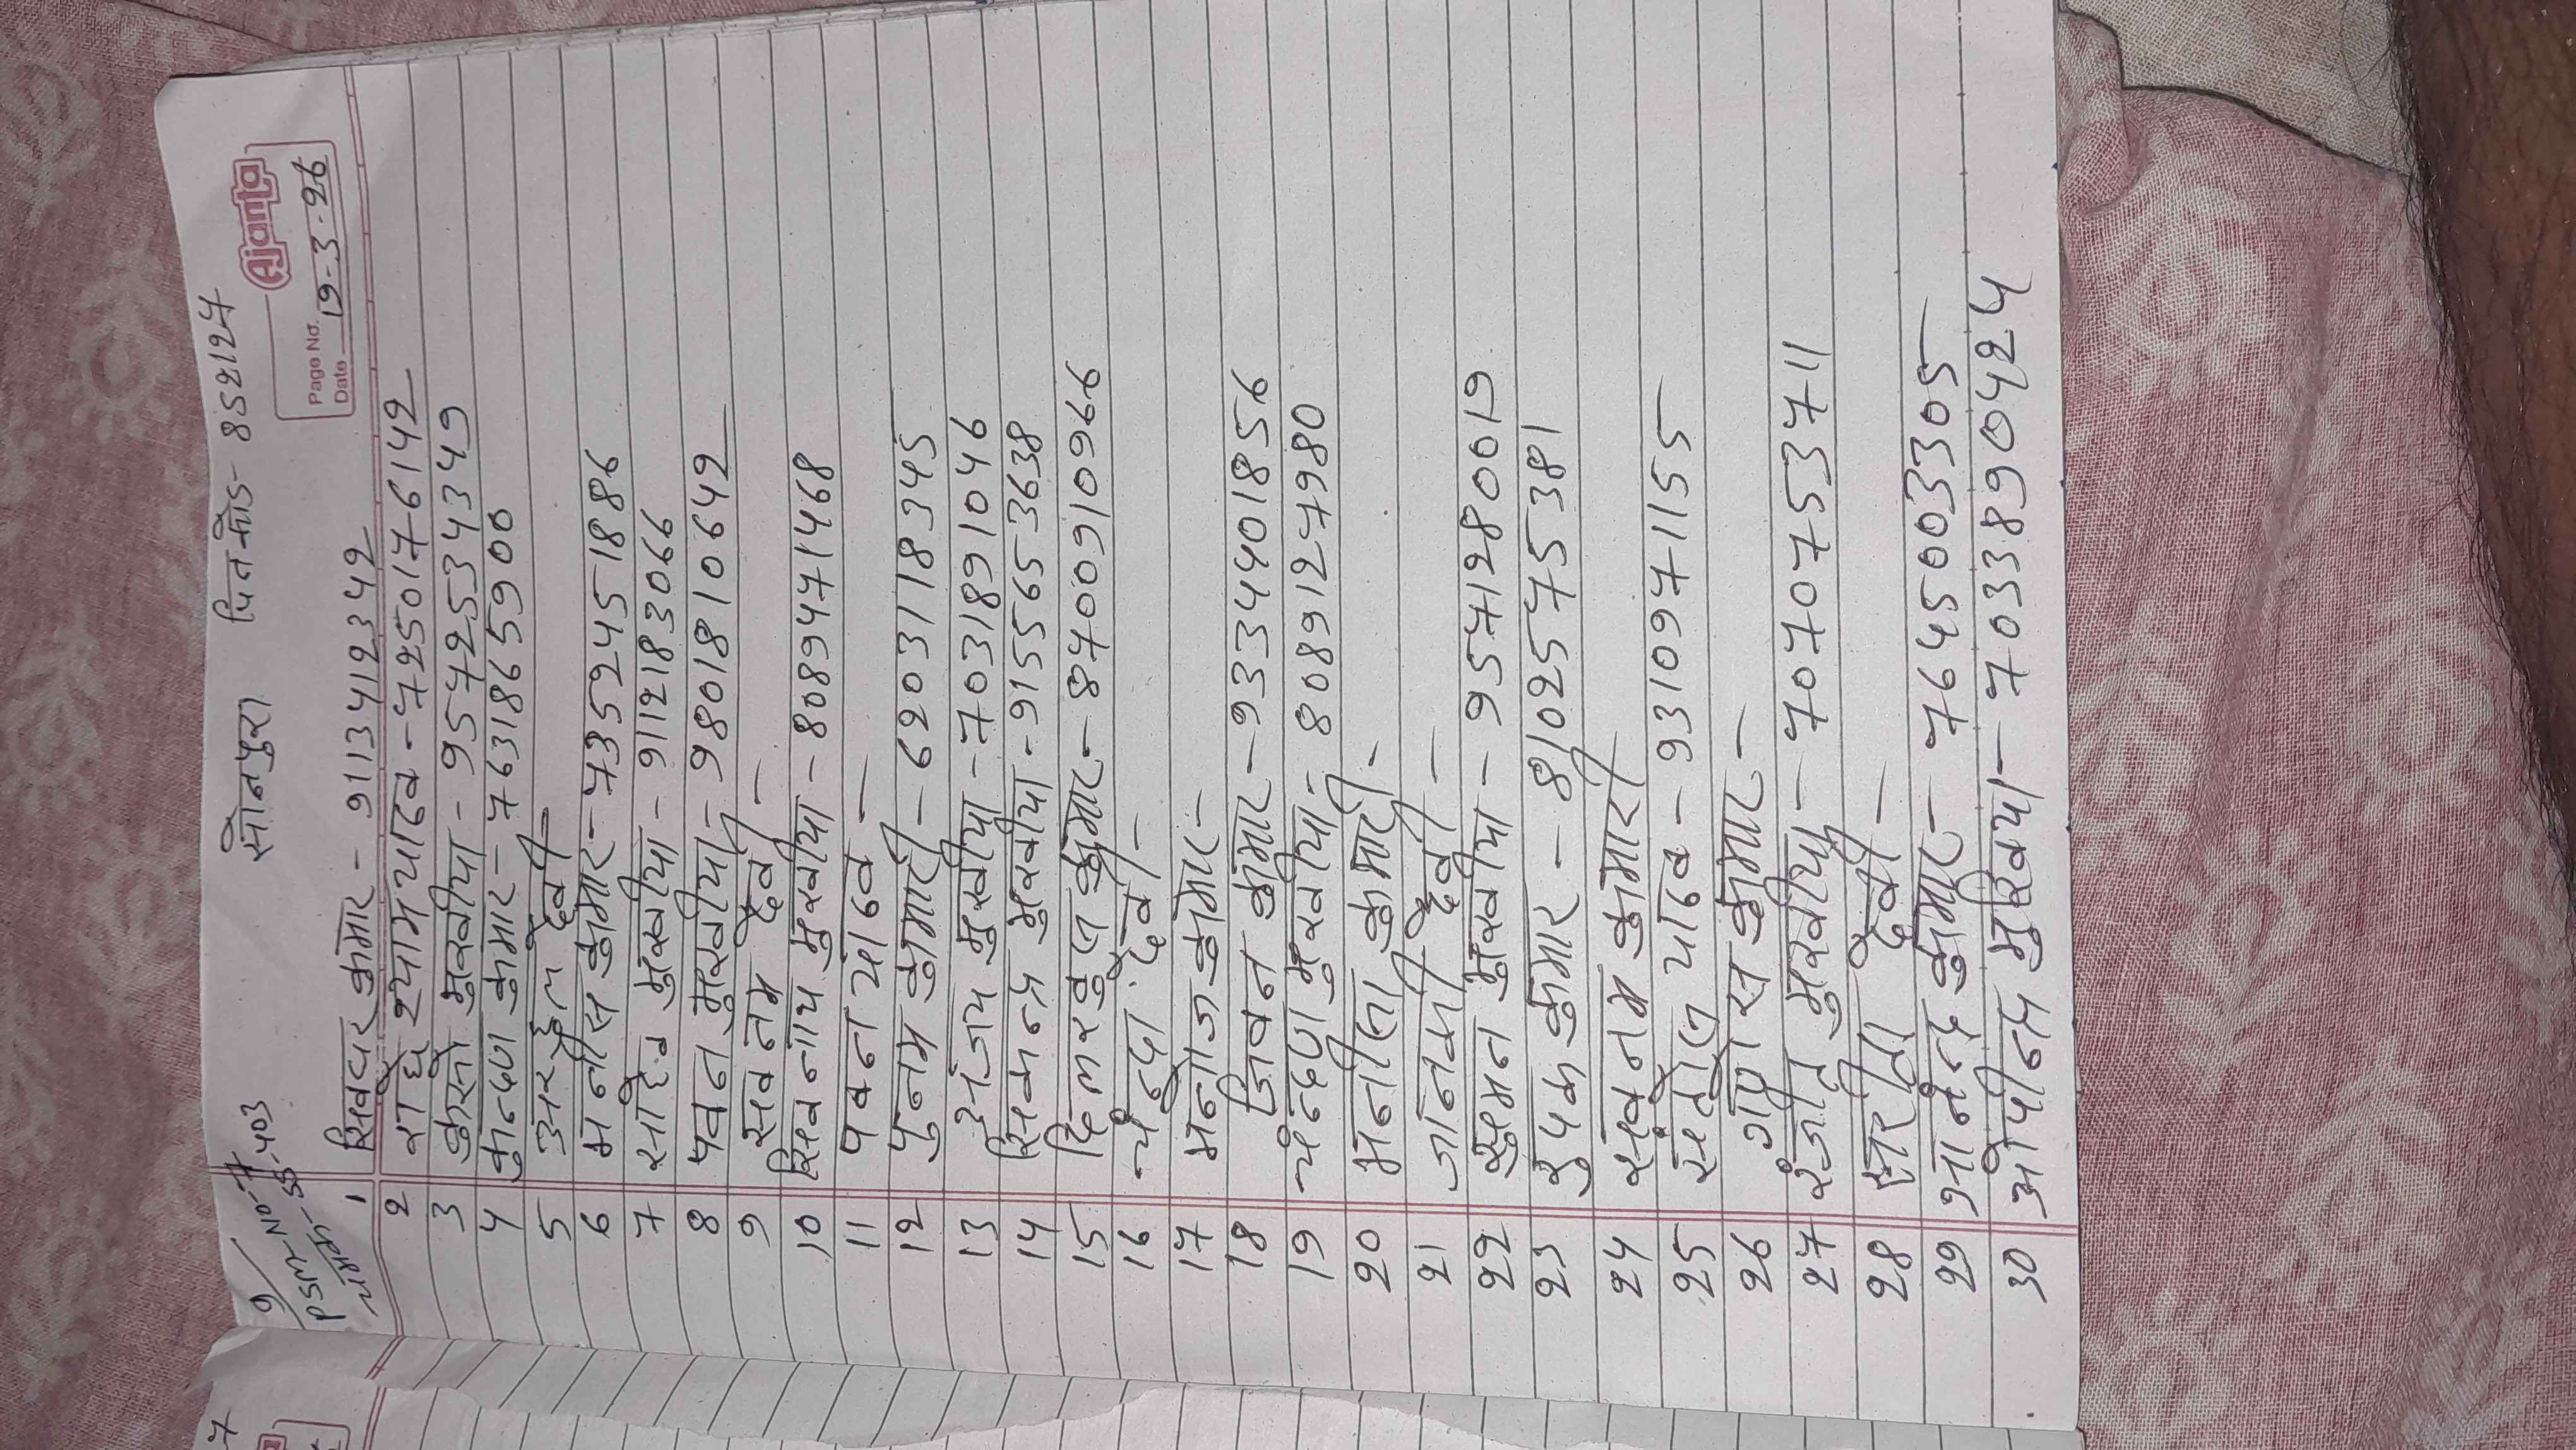 9
PSM-NO-7
55-403
सोनपुरा पिन कोड- 852127
Ajanta
Page No.
Date 19-3-26
1 सिवचर कुमार - 9113412342
2 राधे श्याम यादव - 7250176142
3 कुस्तो मुखीया - 9572534349
4 कुन्दण कुमार - 7631865900
5 अरहुल देवी
6 मनीस कुमार - 7352451886
7 साहेव मुखीया - 9112183066
8 पवन मुखीया - 9801810642
9 सवनम देवी -
10 सिवनाथ मुखीया - 8089471468
11 पवन यादव -
12 पुनम कुमारी - 6203118345
13 अंजय मुखीया - 7031891046
14 सिकन्द्र मुखीया - 9155653638
15 दिलखुल कुमार - 8700910966
16 चंदा देवी -
17 मनोज कुमार -
18 जिवन कुमार - 9334401856
19 चन्दण मुखीया - 8089127980
20 मनीला कुमारी -
21 जानकी देवी -
22 सुमन मुखीया - 9571280019
23 रुपक कुमार - 8102575381
24 सवनम कुमारी
25 संतोल यादव - 9310971155
26 गणेस कुमार -
27 रंजीत मुखीया - 7070753711
28 सरीता देवी -
29 आनंद कुमार - 7645003305
30 ओपीन्द्र मुखिया - 7033890424